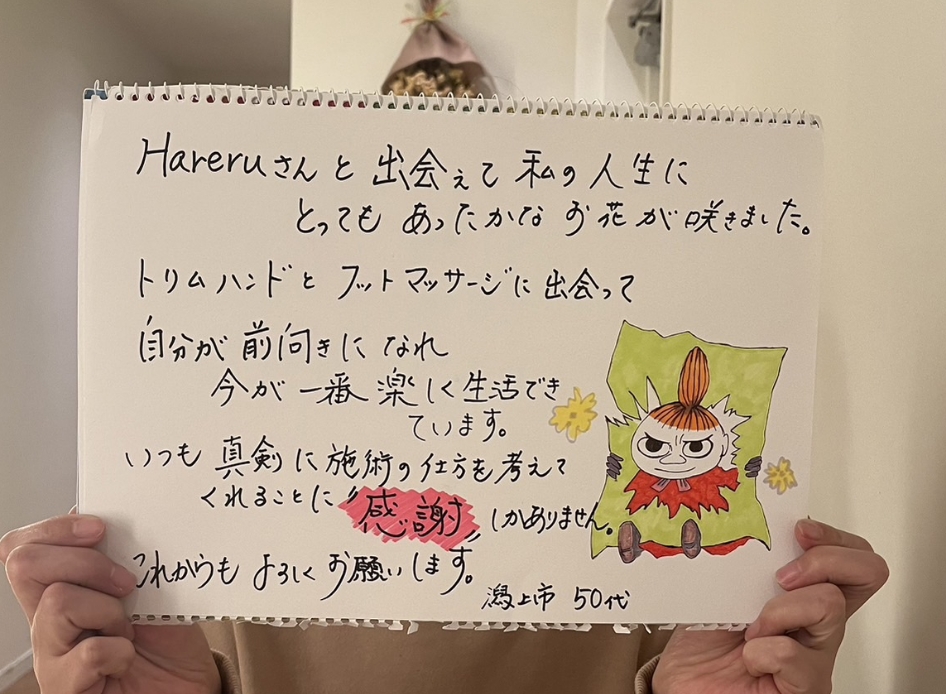 Hareruさんと出会えて私の人生に
とってもあったかなお花が咲きました。
トリムハンドとフットマッサージに出会って
自分が前向きになれ
今が一番楽しく生活でき
ています。
いつも真剣に施術の仕方を考えて
くれることに"感謝"しかありません。
これからもよろしくお願いします。
潟上市 50代